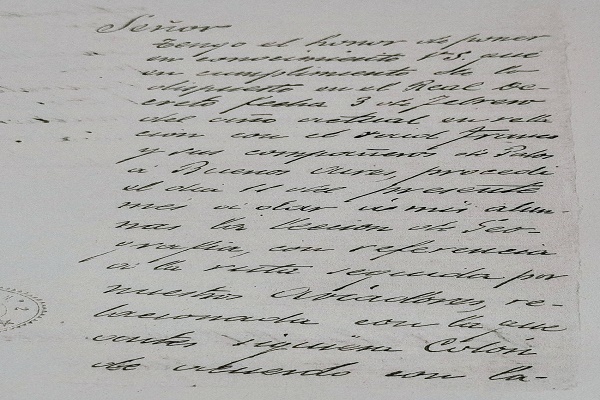 Señor
Tengo el honor de poner
en conocimiento V.S. que
en cumplimiento de lo
dispuesto en el Real De-
creto fecha 3 de Febrero
del año actual en rela-
ción con el raid Franco
y sus compañeros de Palos
a Buenos Aires, procedi
el dia 11 del presente
mes a dar a mis alum-
nas la lección de Geo-
grafia, con referencia
a la ruta seguida por
nuestros Aviadores, re-
lacionada con la que
antes siguiera Colón
de acuerdo con la-